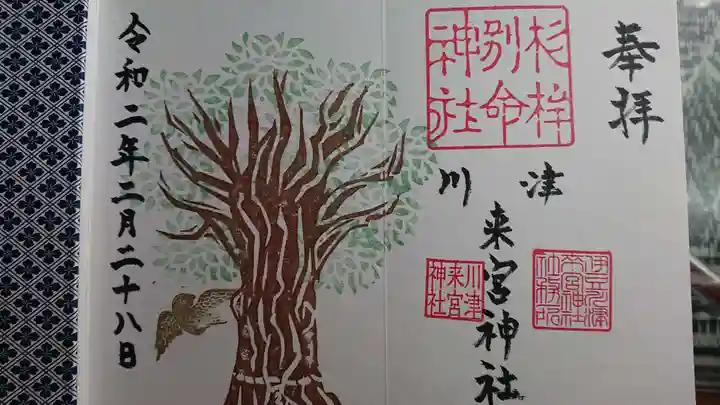 奉拝
杉桙
別命
神社
川津
来宮神社
川津
来宮
神社
令和二年二月二十八日